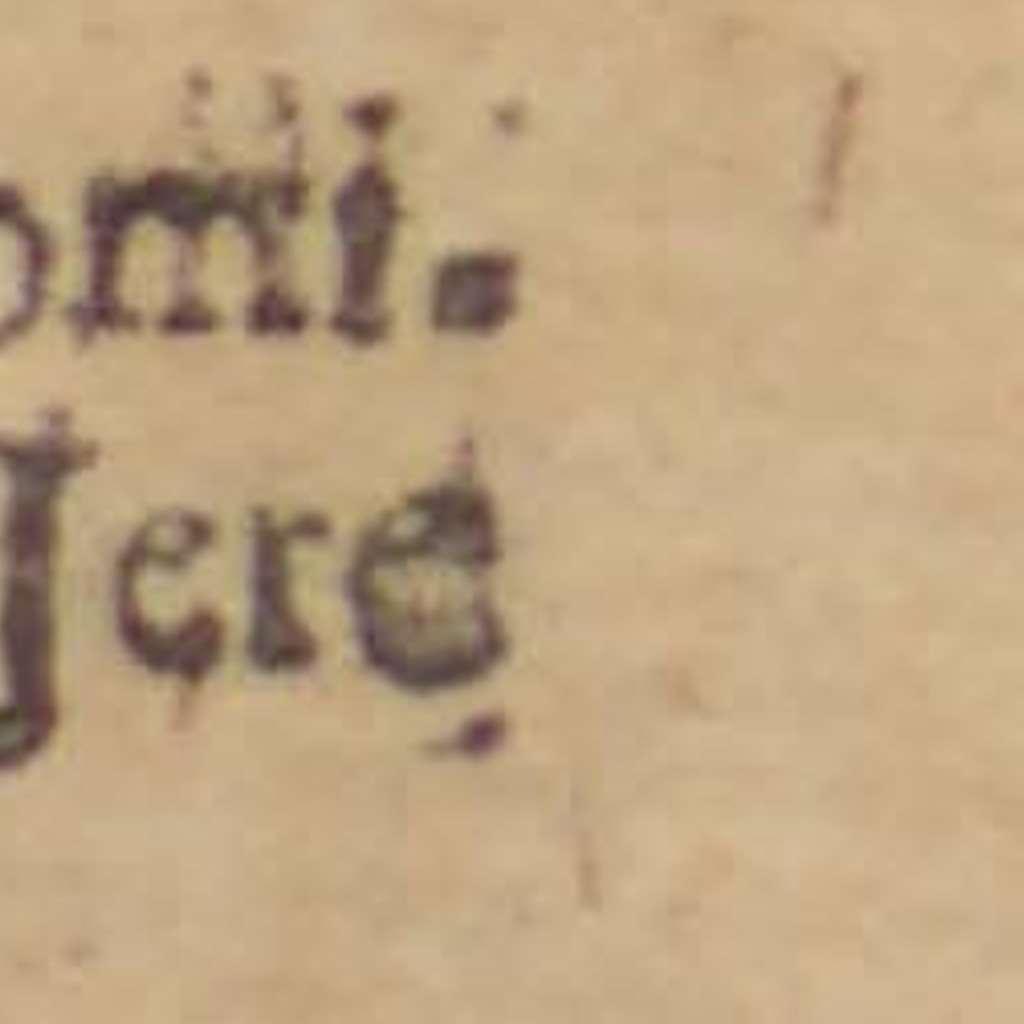 omi.
Jere